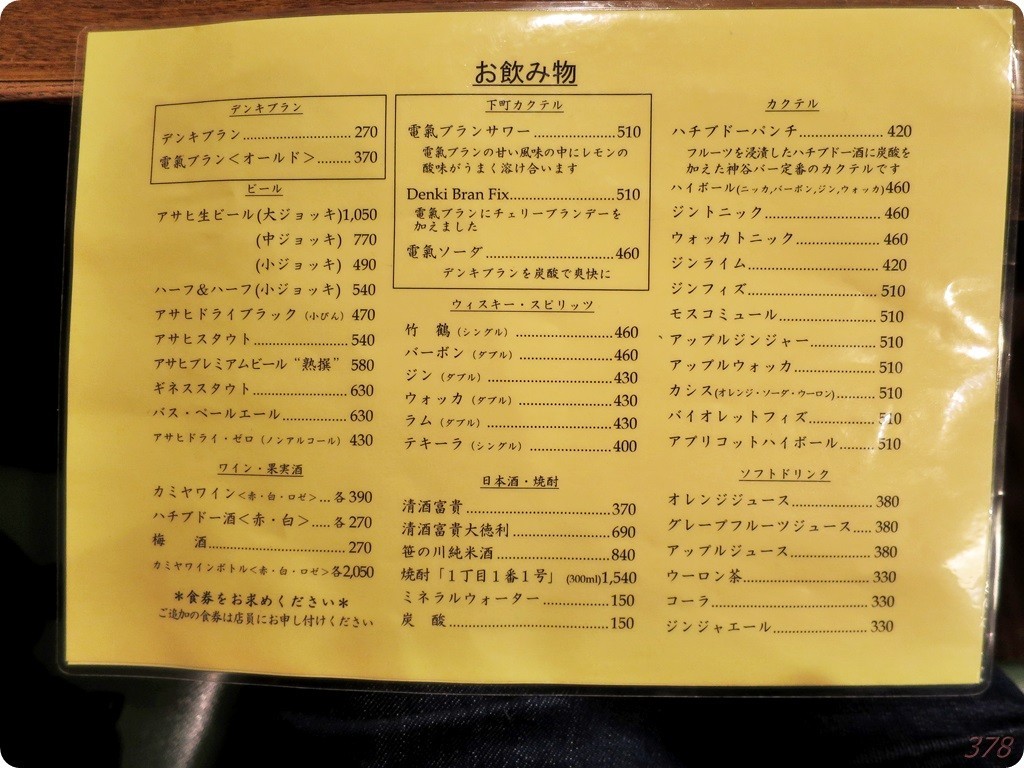 お飲み物
デンキブラン
デンキブラン............................270
電氣ブラン<オールド>.........370
ビール
アサヒ生ビール(大ジョッキ)1,050
(中ジョッキ) 770
(小ジョッキ) 490
ハーフ&ハーフ(小ジョッキ) 540
アサヒドライブラック (小びん) 470
アサヒスタウト........................540
アサヒプレミアムビール“熟撰” 580
ギネススタウト........................630
バス・ペールエール................630
アサヒドライ・ゼロ (ノンアルコール) 430
ワイン・果実酒
カミヤワイン<赤・白・ロゼ>...各390
ハチブドー酒<赤・白>.....各270
梅 酒...................................270
カミヤワインボトル<赤・白・ロゼ>各2,050
*食券をお求めください*
ご追加の食券は店員にお申し付けください
下町カクテル
電氣ブランサワー.....................510
電氣ブランの甘い風味の中にレモンの
酸味がうまく溶け合います
Denki Bran Fix...........................510
電氣ブランにチェリーブランデーを
加えました
電氣ソーダ.................................460
デンキブランを炭酸で爽快に
ウィスキー・スピリッツ
竹 鶴 (シングル) .........................460
バーボン (ダブル) .........................460
ジン (ダブル) ................................430
ウォッカ (ダブル) .........................430
ラム (ダブル) ................................430
テキーラ (シングル) ......................400
日本酒・焼酎
清酒富貴.....................................370
清酒富貴大徳利.........................690
笹の川純米酒............................840
焼酎「1丁目1番1号」 (300ml)1,540
ミネラルウォーター.................150
炭 酸..........................................150
カクテル
ハチブドーパンチ......................420
フルーツを浸漬したハチブドー酒に炭酸を
加えた神谷バー定番のカクテルです
ハイボール(ニッカ,バーボン,ジン,ウォッカ)460
ジントニック..............................460
ウォッカトニック......................460
ジンライム.................................420
ジンフィズ.................................510
モスコミュール.........................510
アップルジンジャー.................510
アップルウォッカ.....................510
カシス(オレンジ・ソーダ・ウーロン)..........510
バイオレットフィズ.................510
アプリコットハイボール.........510
ソフトドリンク
オレンジジュース.....................380
グレープフルーツジュース.....380
アップルジュース.....................380
ウーロン茶.................................330
コーラ........................................330
ジンジャエール........................330
378